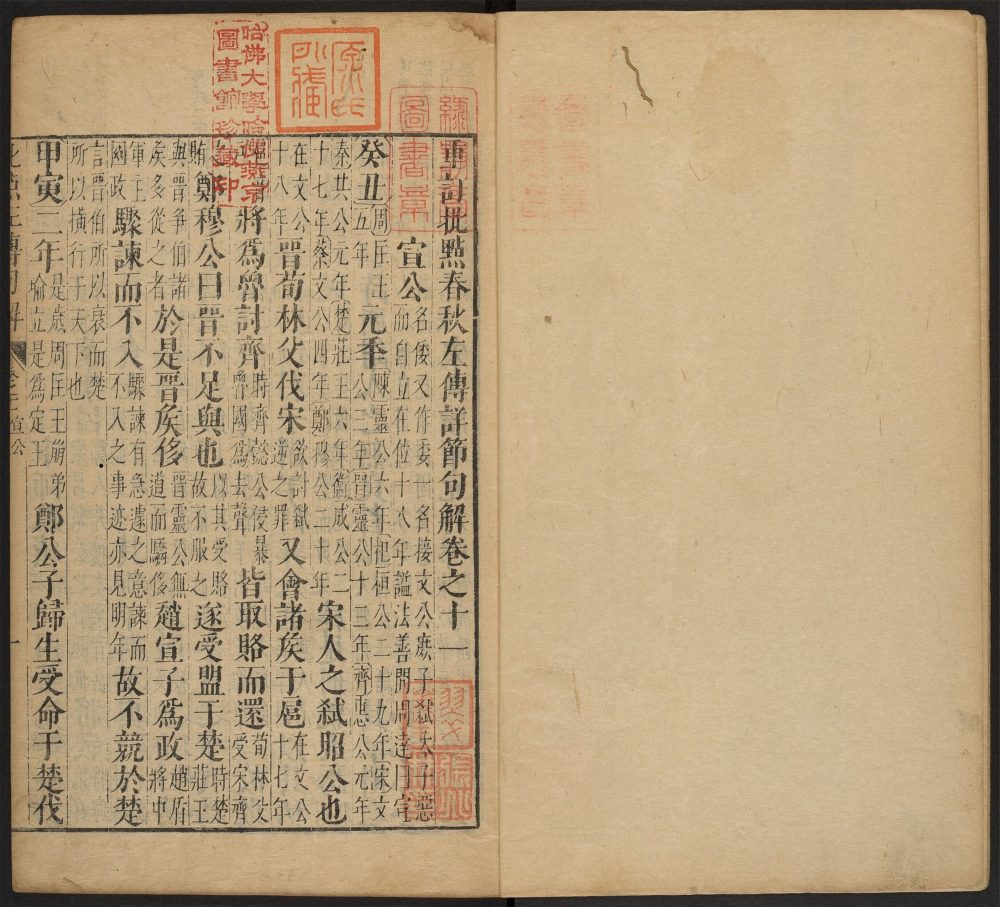 重訂批點春秋左傳詳節句解卷之十一
宣公 名倭又作委一名接文公庶子弒太子惡而自立在位十八年謚法善問周達曰宣
癸丑 周匡王五年 元年 公二年晉靈公十三年齊惠公元年 陳靈公六年杞桓公二十九年宋文
秦共公元年楚莊王六年衛成公二十七年蔡文公四年鄭穆公二十年 宋人之弒昭公也
在文公十八年 晉荀林父伐宋 欲討弒逆之罪 又會諸矦于扈 在文公十七年
將爲魯討齊 時齊懿公侵暴魯國爲去聲 皆取賂而還 荀林父受宋齊
賂 鄭穆公曰晉不足與也 以其受賂故不服之 遂受盟于楚 時楚莊王
與晉爭伯諸矦多從之者 於是晉矦侈 晉靈公無道而驕侈 趙宣子爲政 趙盾將中
軍主國政 驟諫而不入 驟諫有急遽之意諫而不入之事迹亦見明年 故不競於楚
言晉伯所以衰而楚所以橫行于天下也
甲寅二年 是歲周匡王崩弟瑜立是爲定王 鄭公子歸生受命于楚伐
宣公
一
哈佛大學哈佛燕京
圖書館珍藏印
圖書章